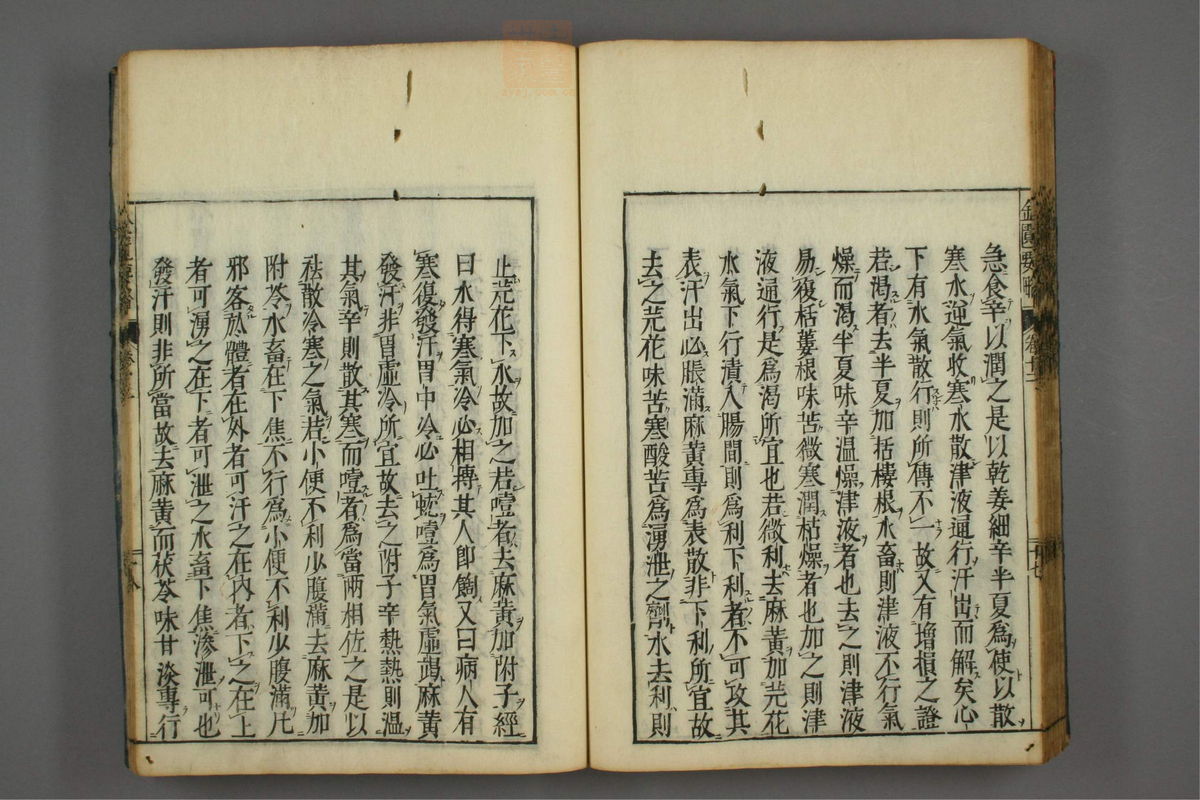 急食辛以潤之是以乾姜細辛半夏爲使以散
寒水逆氣收寒水散津液通行汗出而解矣心
下有水氣散行則所傳不一故又有增損之證
若渴者去半夏加栝樓根水畜則津液不行氣
燥而渴半夏味辛溫燥津液者也去之則津液
易復栝蔞根味苦微寒潤枯燥者也加之則津
液通行是爲渴所宜也若微利去麻黃加芫花
水氣下行漬入腸間則爲利下利者不可攻其
表汗出必脹滿麻黃專爲表散非下利所宜故
去之芫花味苦寒酸苦爲湧泄之劑水去利則
止芫花下水故加之若噎者去麻黃加附子經
曰水得寒氣冷必相摶其人卽䭇又曰病人有
寒復發汗胃中冷必吐蚘噎爲胃氣虛竭麻黃
發汗非胃虛冷所宜故去之附子辛熱熱則溫
其氣辛則散其寒而噎者爲當兩相佐之是以
祛散冷寒之氣若小便不利少腹滿去麻黃加
附苓水畜在下焦不行爲小便不利少腹滿凡
邪客於體者在外者可汗之在內者下之在上
者可湧之在下者可泄之水畜下焦滲泄可也
發汗則非所當故去麻黃而茯苓味甘淡專行
金匱要略